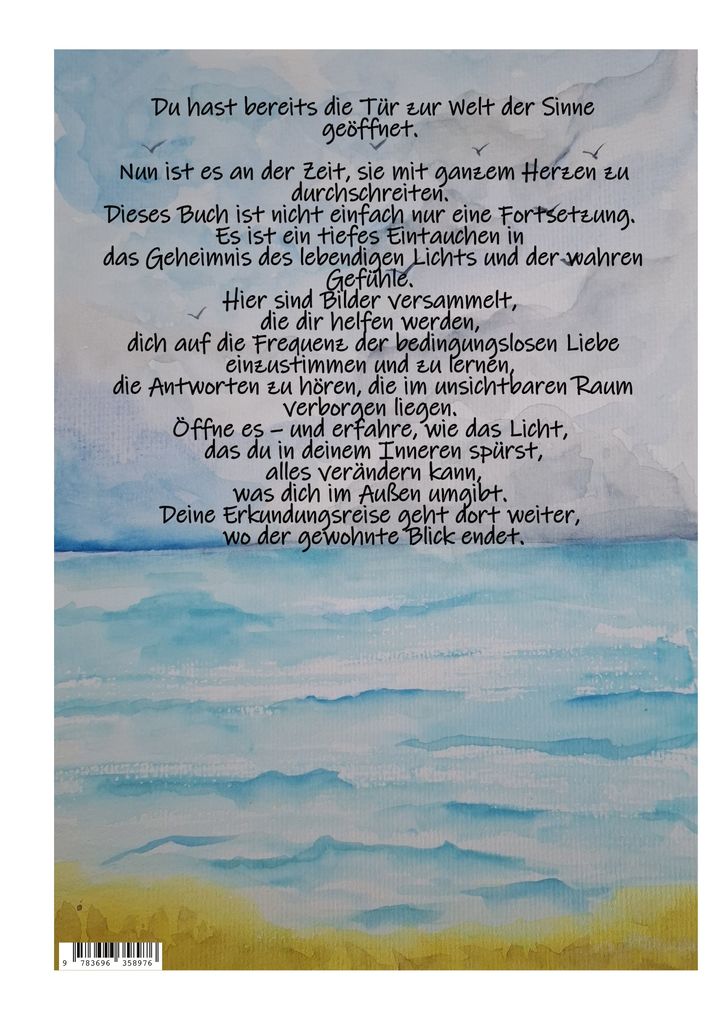 Du hast bereits die Tür zur Welt der Sinne
geöffnet.
Nun ist es an der Zeit, sie mit ganzem Herzen zu
durchschreiten.
Dieses Buch ist nicht einfach nur eine Fortsetzung.
Es ist ein tiefes Eintauchen in
das Geheimnis des lebendigen Lichts und der wahren
Gefühle.
Hier sind Bilder versammelt,
die dir helfen werden,
dich auf die Frequenz der bedingungslosen Liebe
einzustimmen und zu lernen,
die Antworten zu hören, die im unsichtbaren Raum
verborgen liegen.
Öffne es – und erfahre, wie das Licht,
das du in deinem Inneren spürst,
alles verändern kann,
was dich im Außen umgibt.
Deine Erkundungsreise geht dort weiter,
wo der gewohnte Blick endet.
9 783696 358976